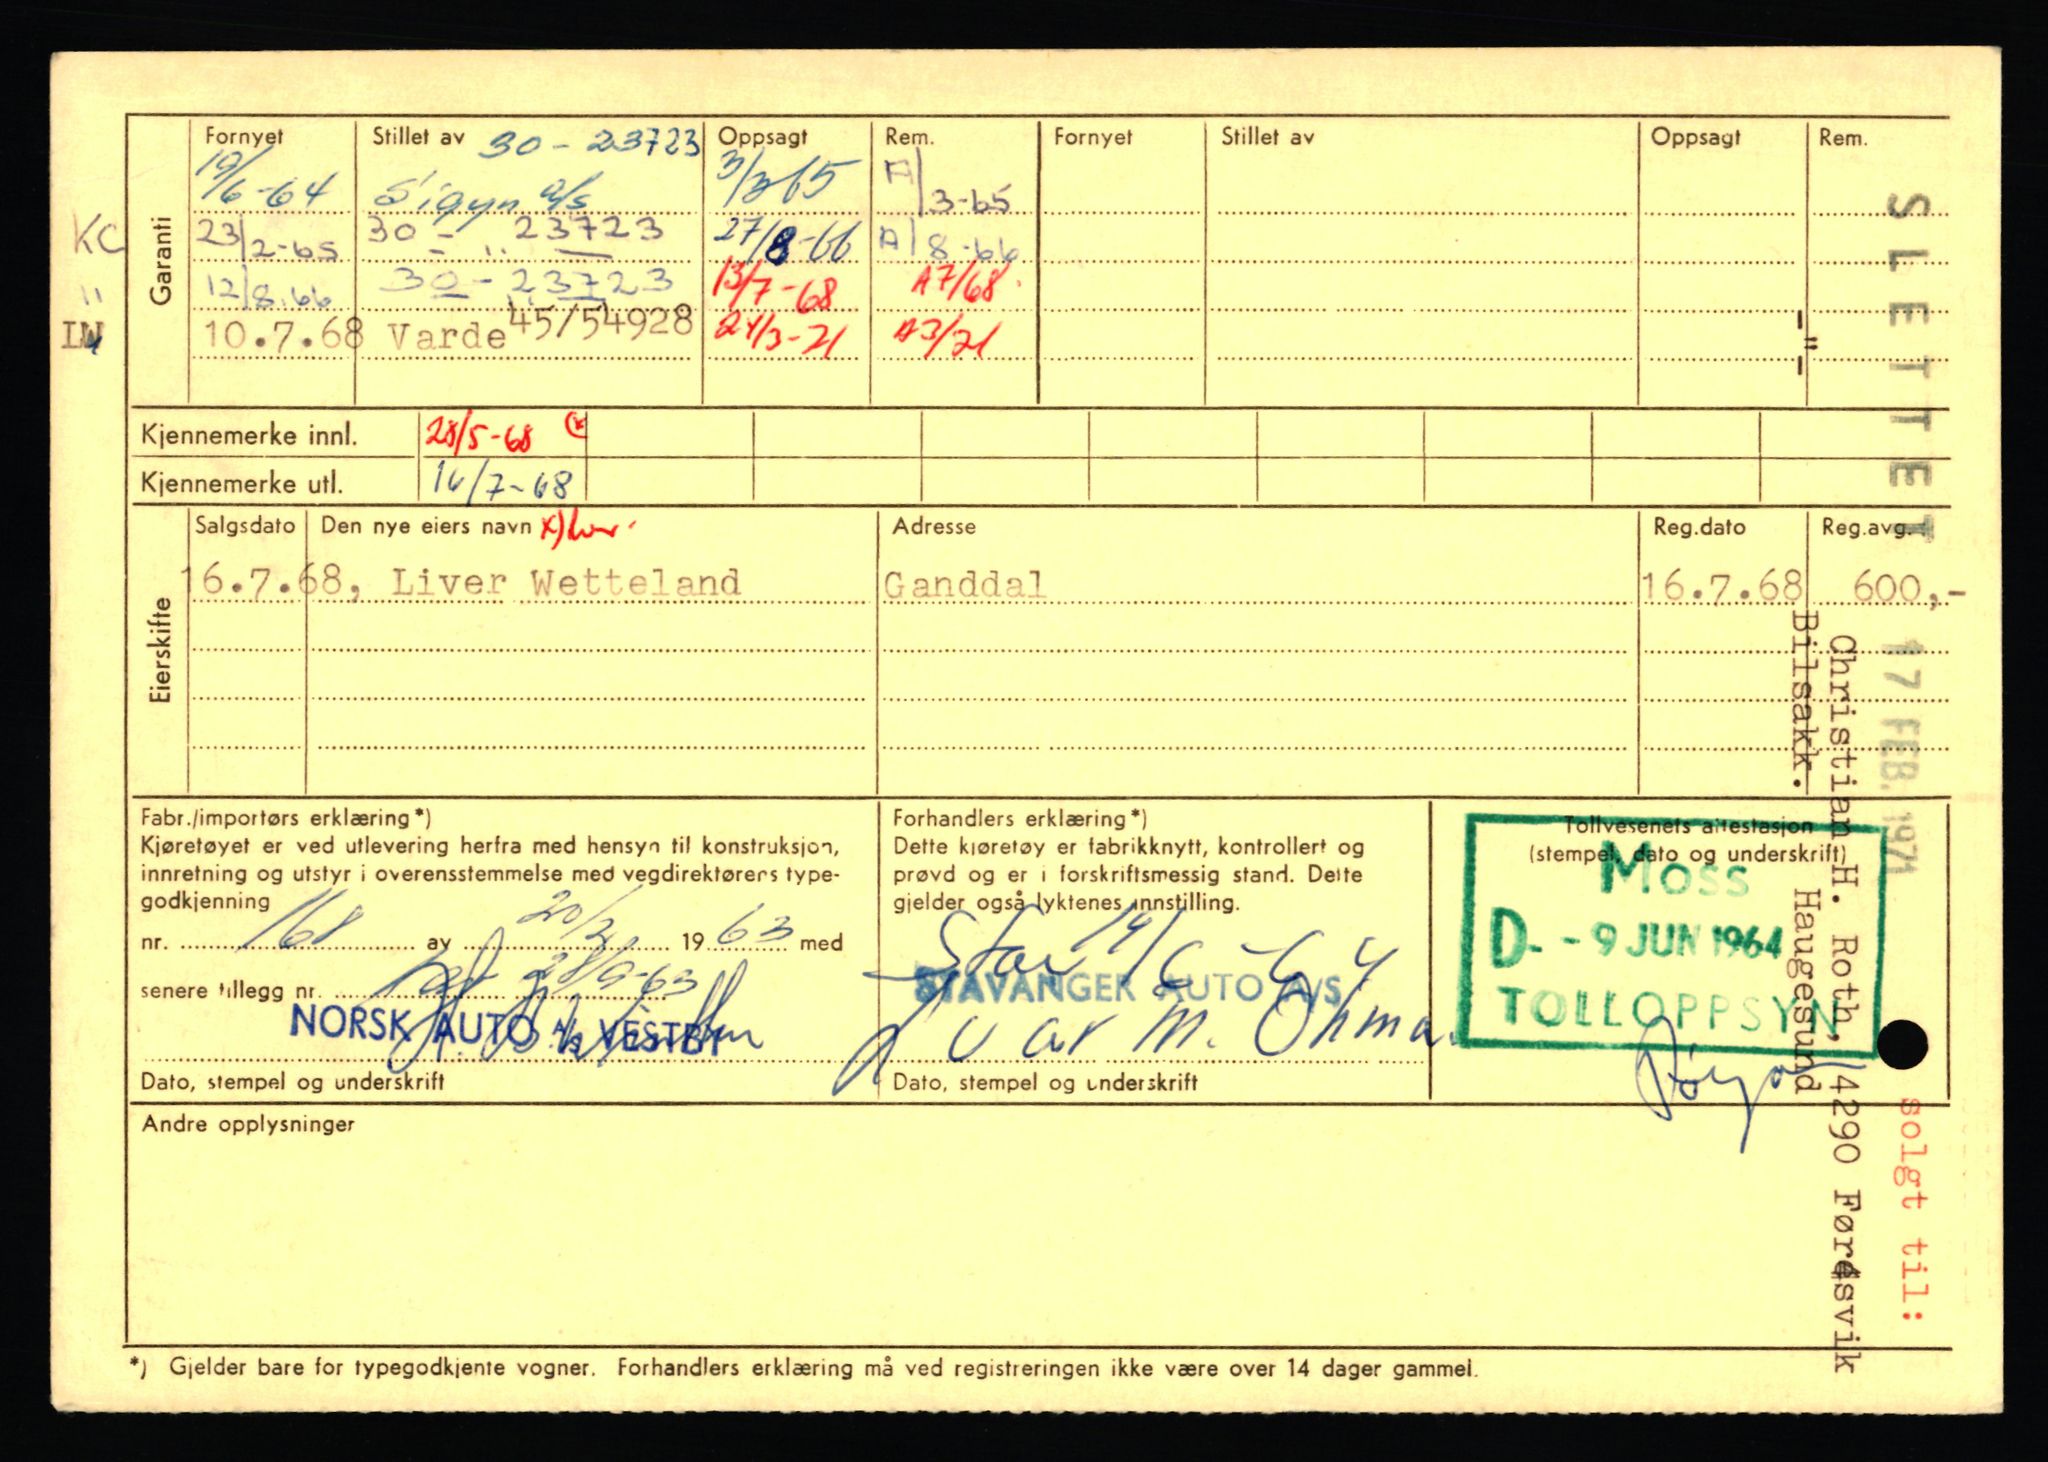 Garanti
Fornyet Stillet av 30-23723 Oppsagt Rem. Fornyet Stillet av Oppsagt Rem.
19/6-64 Sigyn a/s 3/3 65 A/3-65
KC 23/2-65 30 - " 23723 27/8-66 A/8-66
" 12/8.66 30 - 23723 13/7-68 A7/68.
10.7.68 Varde 45/54928 24/3-71 A3/71
Kjennemerke innl. 28/5-68 (x
Kjennemerke utl. 16/7-68
Eierskifte
Salgsdato Den nye eiers navn Adresse Reg.dato Reg.avg.
16.7.68, Liver Wetteland Ganddal 16.7.68 600,-
Fabr./importørs erklæring*)
Kjøretøyet er ved utlevering herfra med hensyn til konstruksjon,
innretning og utstyr i overensstemmelse med vegdirektørens type-
godkjenning
nr. 168 av 20/3 1963 med
senere tillegg nr. 28/9-63
NORSK AUTO A/S VESTBY
Dato, stempel og underskrift
Forhandlers erklæring*)
Dette kjøretøy er fabrikknytt, kontrollert og
prøvd og er i forskriftsmessig stand. Dette
gjelder også lyktenes innstilling.
Stav 19/6-64
STAVANGER AUTO A/S
Ivar M. Öhman
Dato, stempel og underskrift
Tollvesenets attestasjon
(stempel, dato og underskrift)
MOSS
D - 9 JUN 1964
TOLLOPPSYN
Andre opplysninger
*) Gjelder bare for typegodkjente vogner. Forhandlers erklæring må ved registreringen ikke være over 14 dager gammel.
SLETTET 17 FEB. 1971
solgt til:
Christian H. Roth, 4290 Førdesvik
-"- Bilsakk. Haugesund